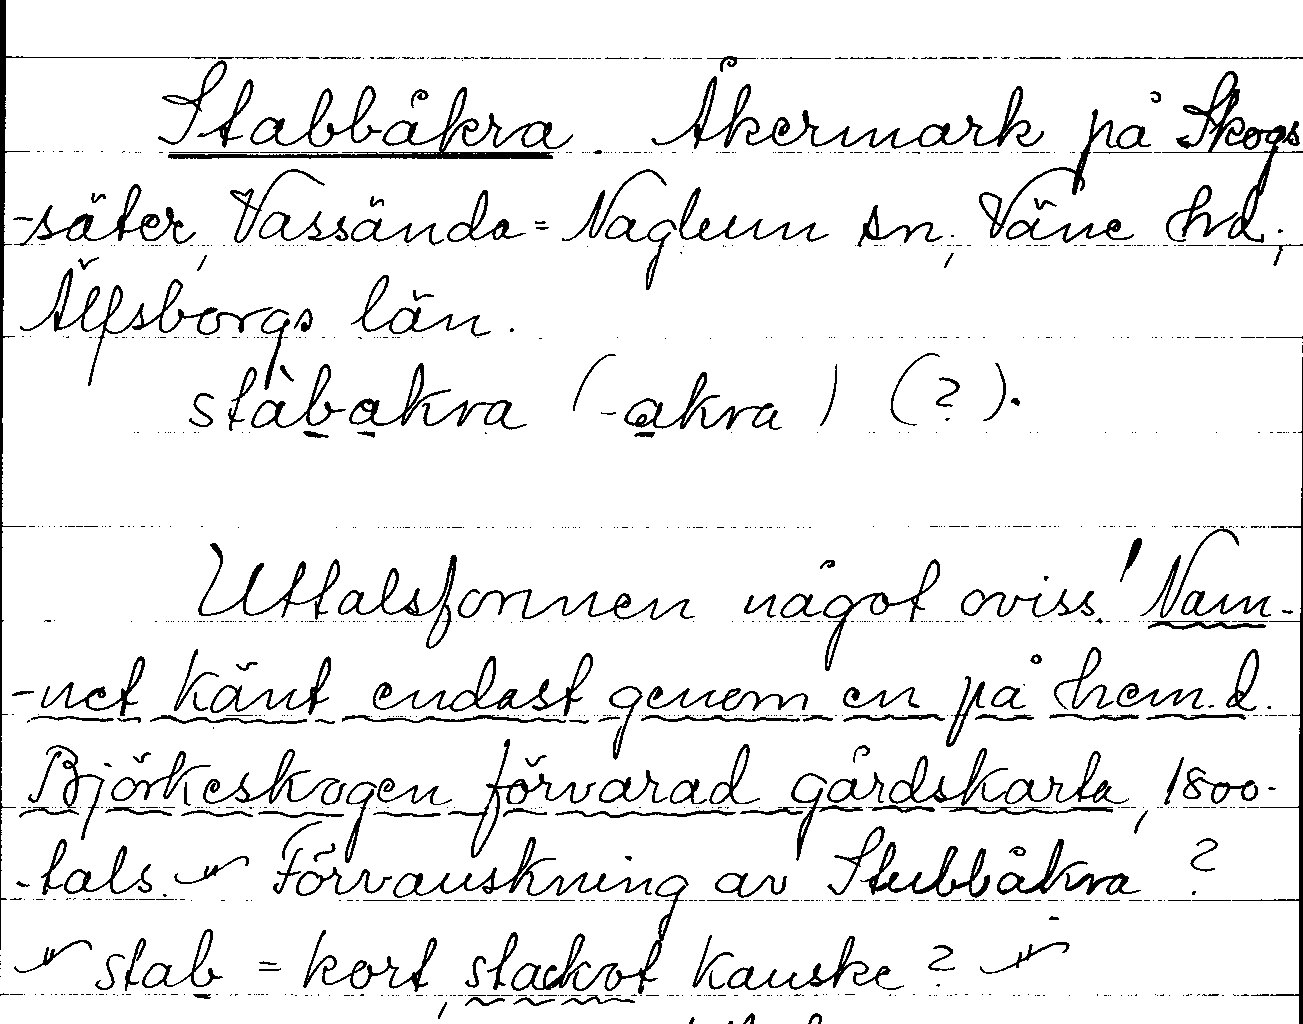 Stabbåkra. Åkermark på Skogs
-säter, Vassända=Naglum sn, Väne hd,
Älfsborgs län.
stàbakra (-akra) (?).
Uttalsformen något oviss! Nam-
-net känt endast genom en på hem.d.
Björkeskogen förvarad gårdskarta, 1800-
-tals. Förvanskning av Stubbåkra?
stab = kort, stackot kanske?